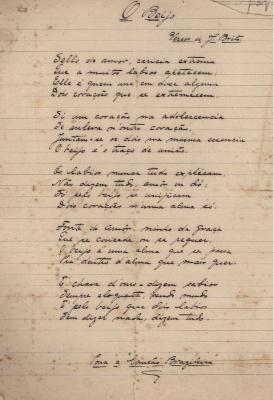 O Beijo
Versos de J. Brito
Sello de amor, caricia extrema
Que a muitos labios apetecem
Elle é quem une em doce algema
Dois corações que se estremecem.
Si um coração na adolescencia
Se enleva n'outro coração,
Juntam-se os dois na mesma essencia
O beijo é o traço de união.
Os labios nunca tudo explicam
Não dizem tudo, amor ou dó;
E pelo beijo se unificam
Dois corações n'uma alma só.
Fonte de amor, ninho da graça
Que se concede ou se requer,
O beijo é uma alma que se passa
P'ra dentro d'alma que mais quer.
É chave d'ouro - dizem sabios
Sempre eloquente, sendo mudo
E pelo beijo que dois labios
Sem dizer nada, dizem tudo.
Para a "Canção Brazileira"